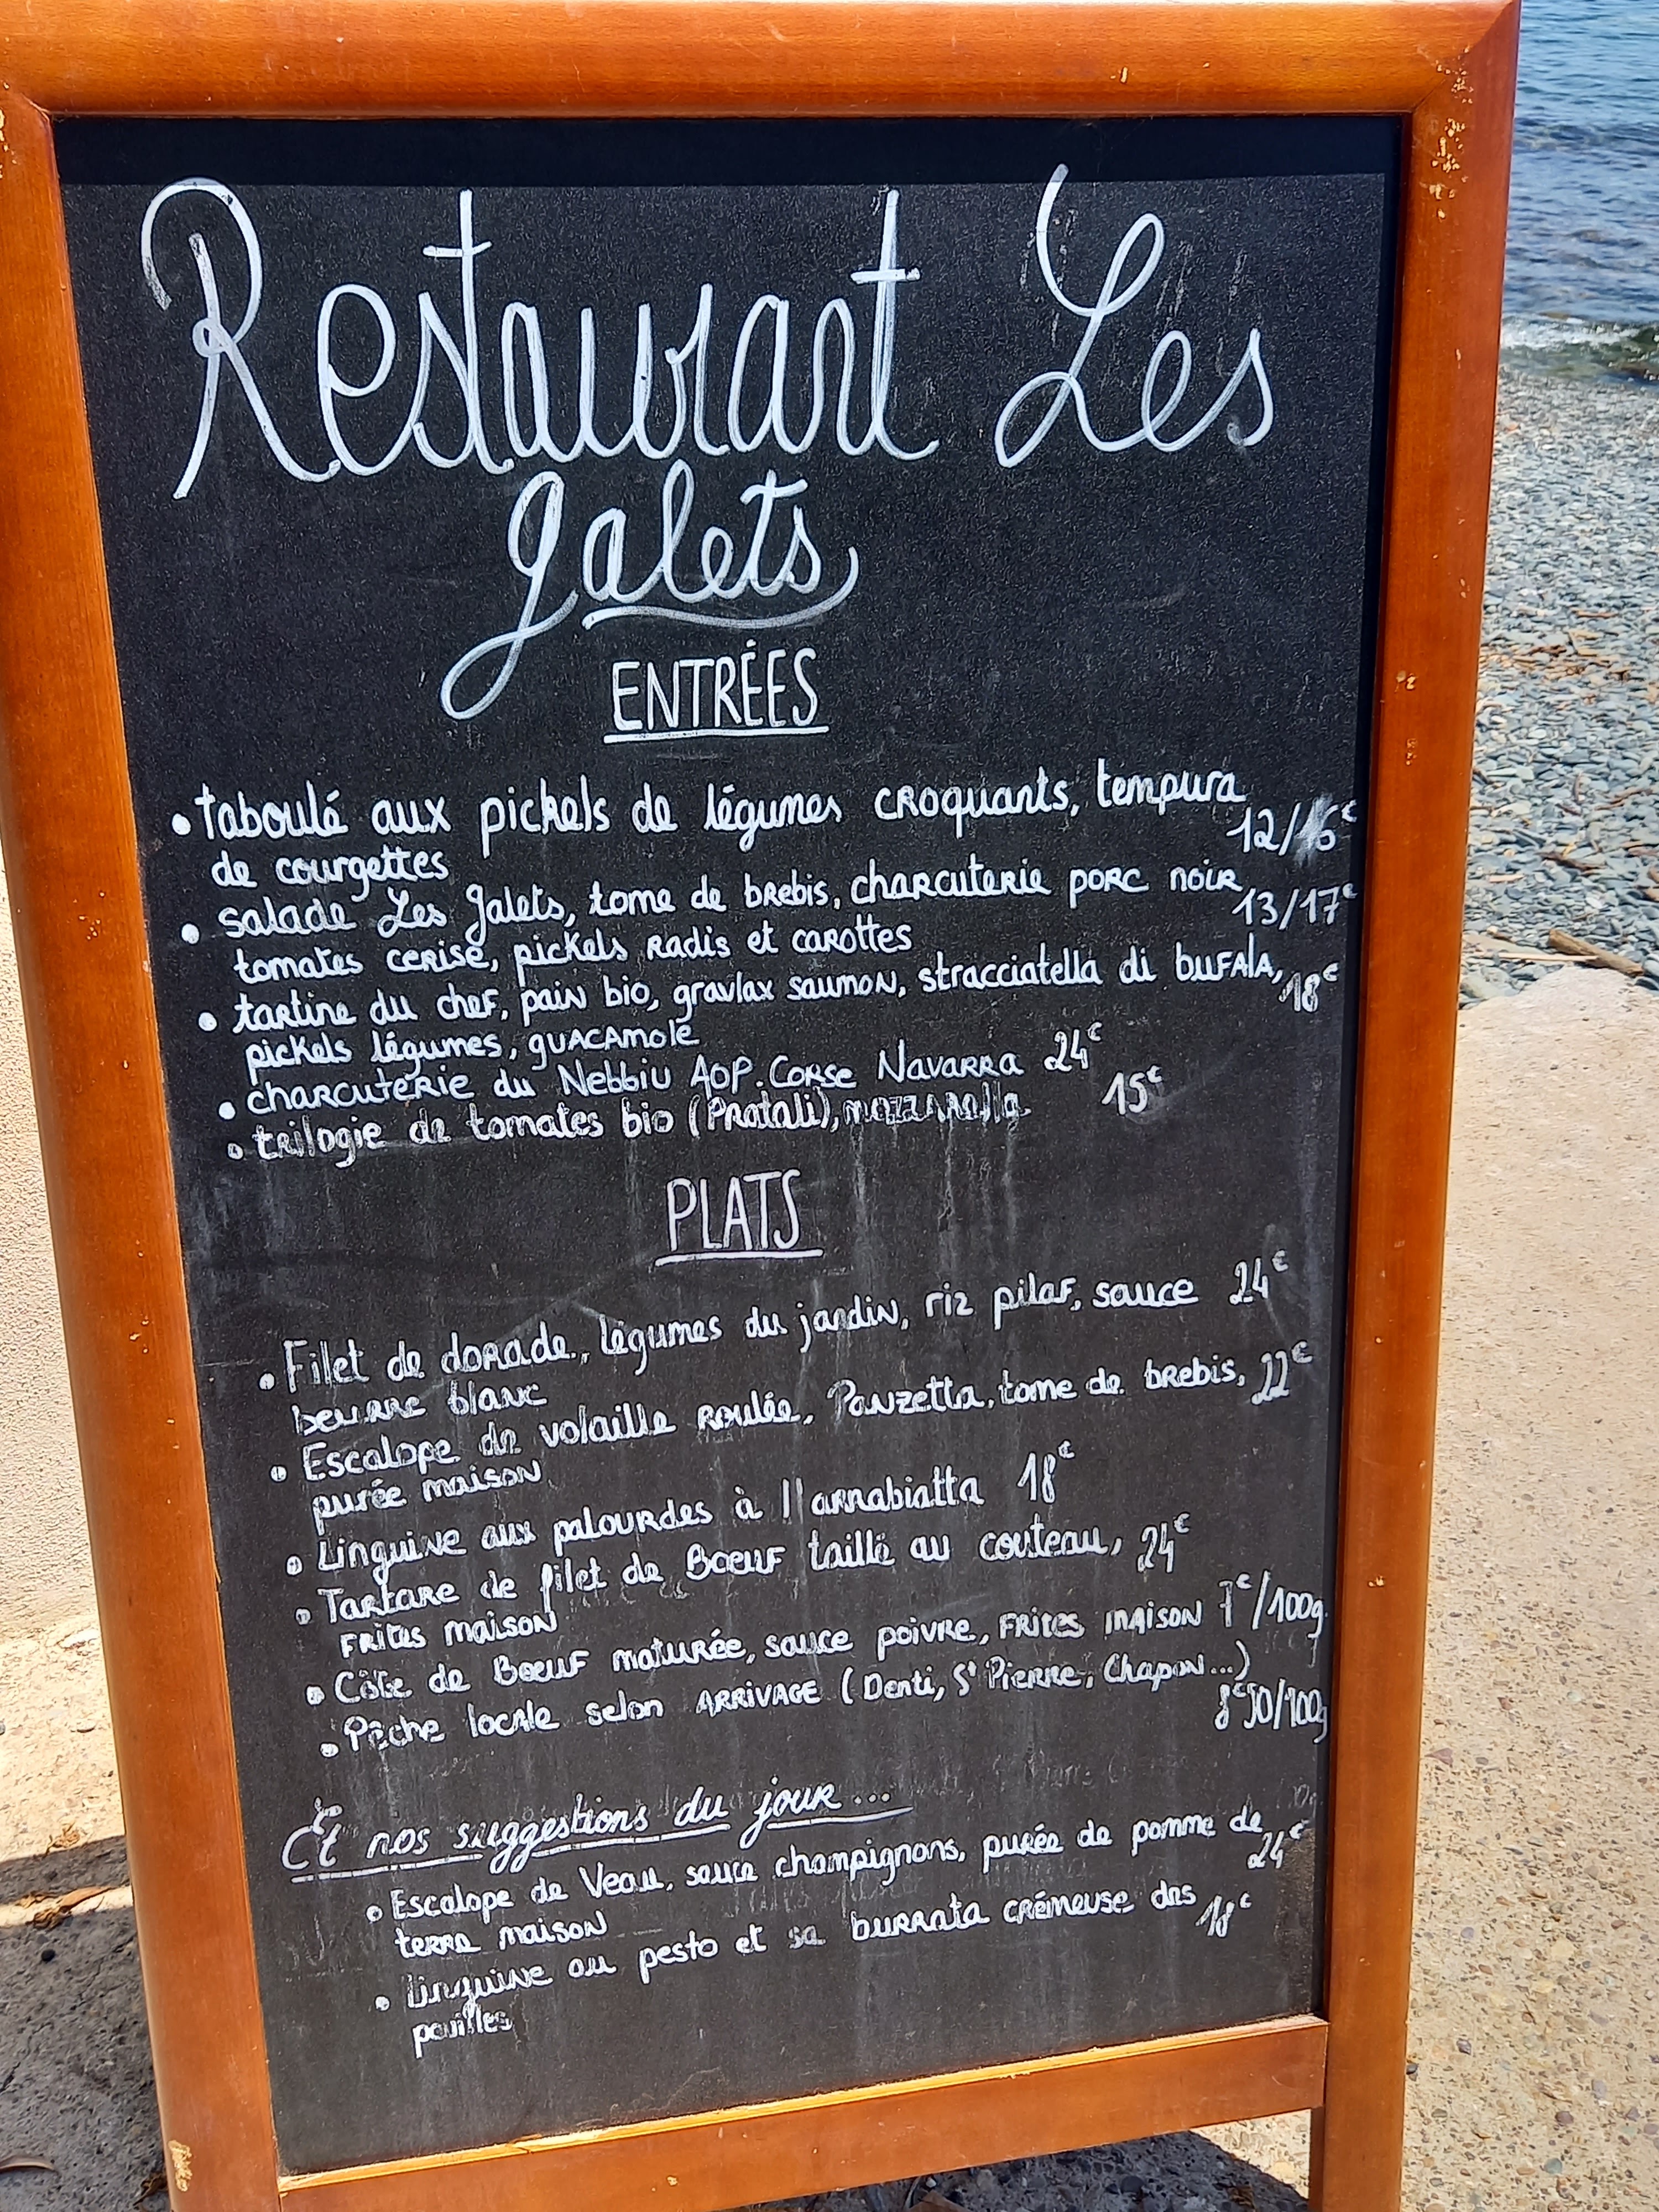 Restaurant Les
galets
ENTRÉES
• taboulé aux pickels de légumes croquants, tempura
de courgettes 12/16€
• salade Les galets, tome de brebis, charcuterie porc noir,
tomates cerise, pickels radis et carottes 13/17€
• tartine du chef, pain bio, gravlax saumon, stracciatella di bufala, 18€
pickels légumes, guacamole
• charcuterie du Nebbiu AOP. Corse Navarra 24€
• trilogie de tomates bio (Pratali), mozzarella 15€
PLATS
• Filet de dorade, légumes du jardin, riz pilaf, sauce 24€
beurre blanc
• Escalope de volaille roulée, Panzetta, tome de brebis, 22€
purée maison
• Linguine aux palourdes à l'arrabiatta 18€
• Tartare de filet de Boeuf taillé au couteau, 24€
frites maison
• Côte de Boeuf maturée, sauce poivre, frites maison 7€/100g
• Pêche locale selon arrivage (Denti, St Pierre, Chapon...)
8€50/100g
Et nos suggestions du jour...
• Escalope de Veau, sauce champignons, purée de pomme de
terre maison 24€
• linguine au pesto et sa burrata crémeuse des 18€
pouilles